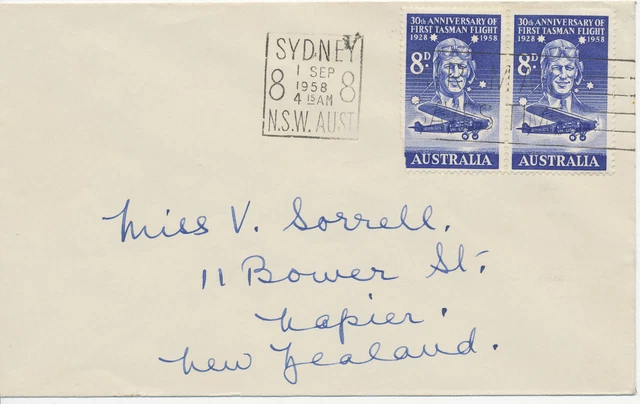 SYDNEY
8 1 SEP 8
1958
4 15 AM
N.S.W. AUST
30th ANNIVERSARY OF
FIRST TASMAN FLIGHT
1928 1958
8D
AUSTRALIA
30th ANNIVERSARY OF
FIRST TASMAN FLIGHT
1928 1958
8D
AUSTRALIA
Miss V. Sorrell.
11 Bower St.
Napier.
New Zealand.